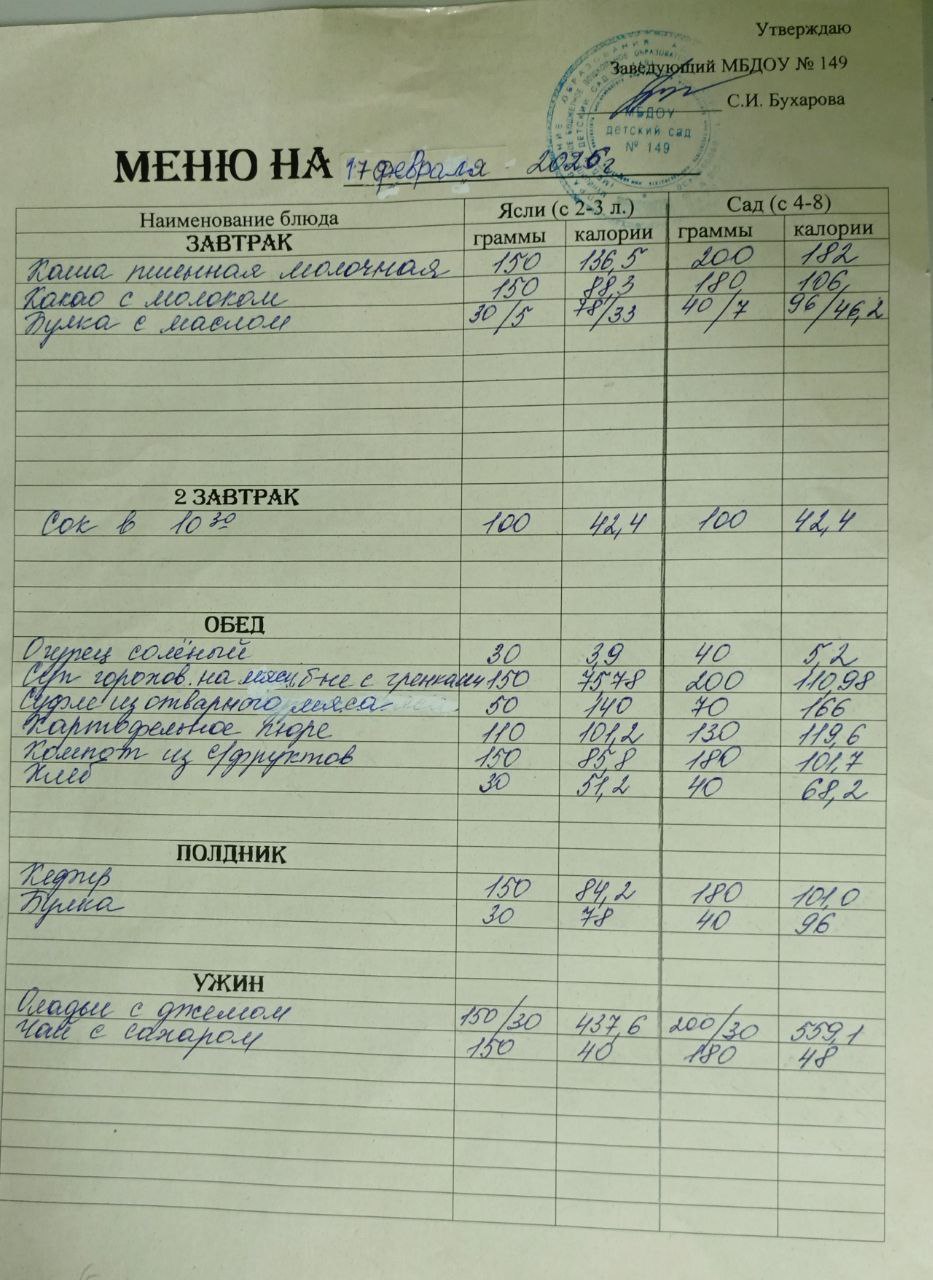 Утверждаю
Заведующий МБДОУ № 149
С.И. Бухарова
МБДОУ
ДЕТСКИЙ САД
№ 149
МЕНЮ НА 17 февраля 2026 г
Наименование блюда Ясли (с 2-3 л.) Сад (с 4-8)
граммы калории граммы калории
ЗАВТРАК
Каша пшенная молочная 150 136,5 200 182
Какао с молоком 150 88,3 180 106
Булка с маслом 30/5 78/33 40/7 96/46,2
2 ЗАВТРАК
Сок в 10 30 100 42,4 100 42,4
ОБЕД
Огурец солёный 30 3,9 40 5,2
Суп горохов. на мясн. б-не с гренками 150 75,78 200 110,98
Суфле из отварного мяса 50 140 70 166
Картофельное пюре 110 101,2 130 119,6
Компот из с/фруктов 150 85,8 180 101,7
Хлеб 30 51,2 40 68,2
ПОЛДНИК
Кефир 150 84,2 180 101,0
Булка 30 78 40 96
УЖИН
Оладьи с джемом 150/30 437,6 200/30 559,1
Чай с сахаром 150 40 180 48